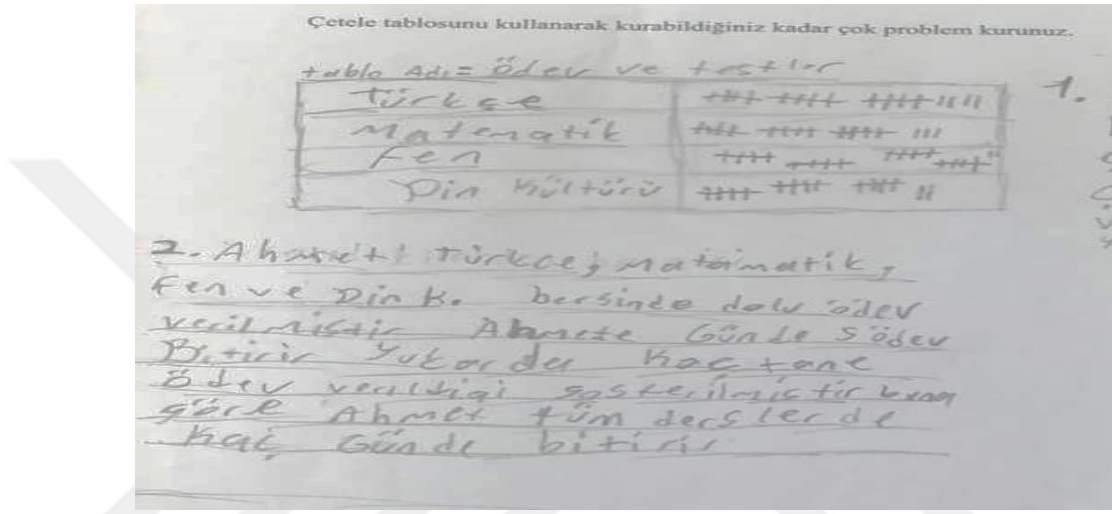 Çetele tablosunu kullanarak kurabildiğiniz kadar çok problem kurunuz.
tablo Adı = ödev ve testler
1.
Türkçe 卌 卌 卌 IIII
Matematik 卌 卌 卌 III
Fen 卌 卌 卌 卌 II
Din Kültürü 卌 卌 卌 II
2. Ahmet Türkçe, Matematik,
Fen ve Din K. Dersinde ödev
verilmiştir Ahmete Günde 5 ödev
Bitirir Yukarda Kaç tane
ödev verildiği gösterilmiştir buna
göre Ahmet tüm derslerde
Kaç Günde bitirir